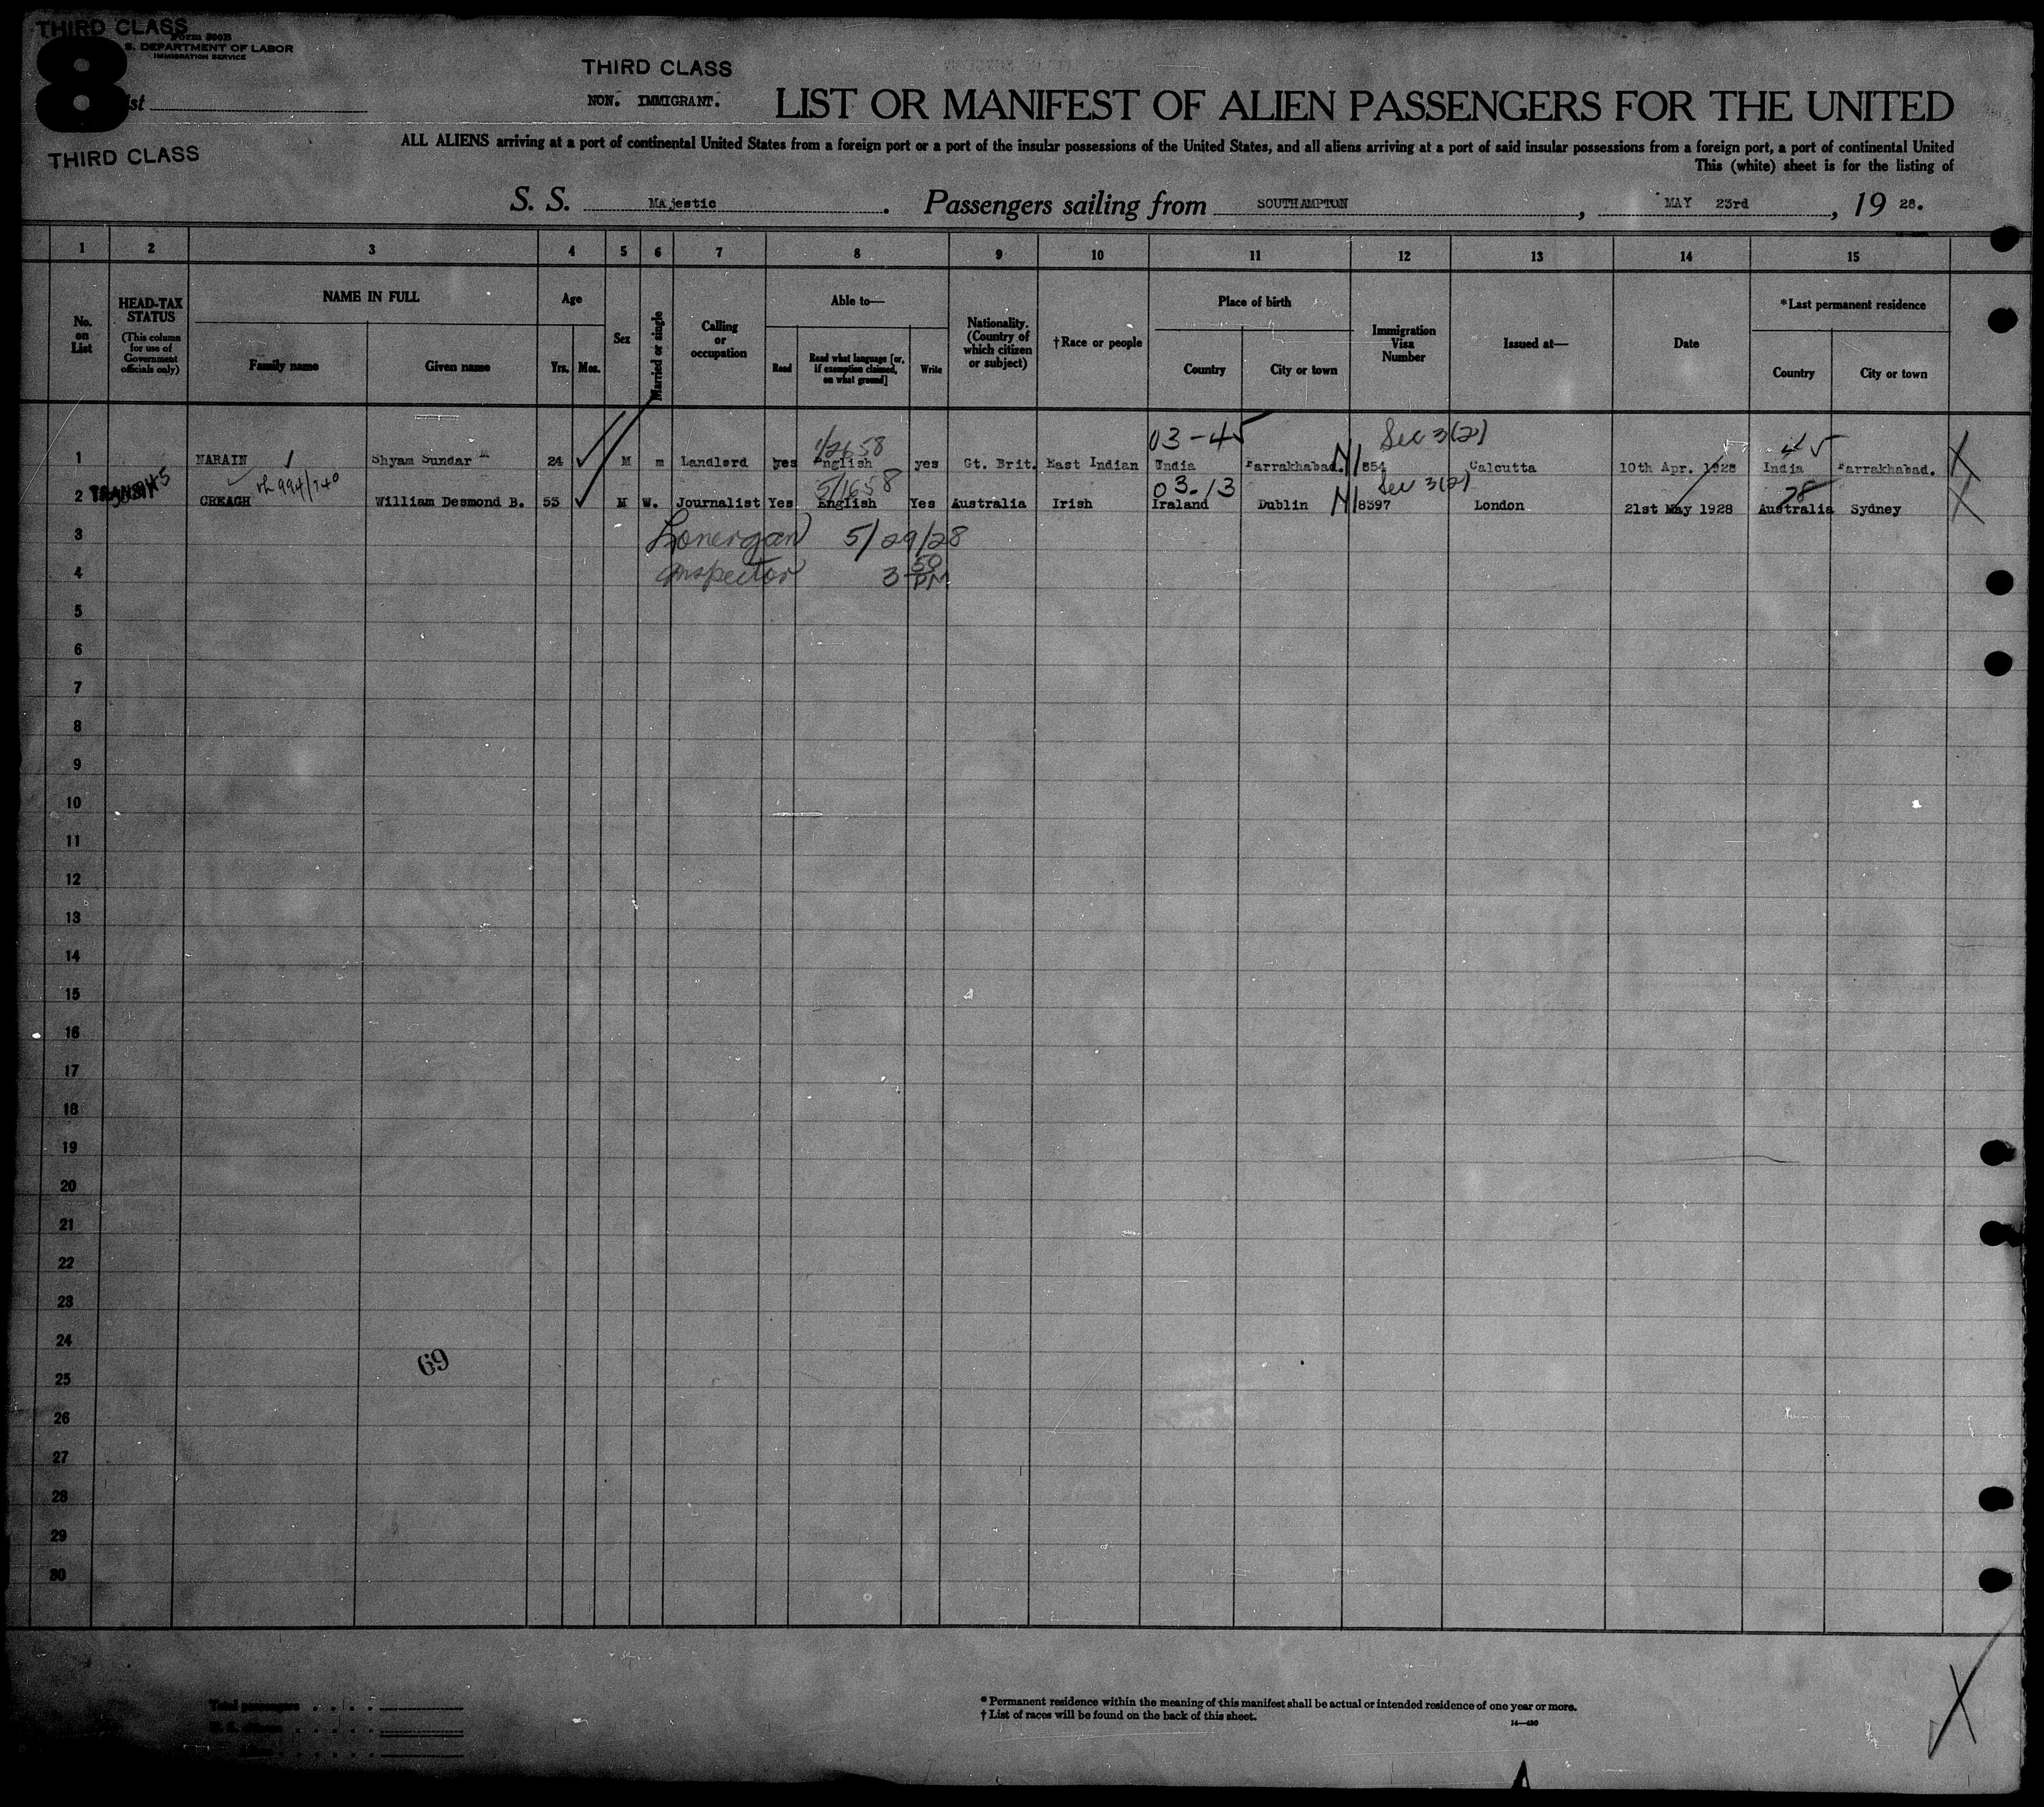 THIRD CLASS
Form 500B
S. DEPARTMENT OF LABOR
IMMIGRATION SERVICE
8
ist
THIRD CLASS
THIRD CLASS
NON. IMMIGRANT.
LIST OR MANIFEST OF ALIEN PASSENGERS FOR THE UNITED
ALL ALIENS arriving at a port of continental United States from a foreign port or a port of the insular possessions of the United States, and all aliens arriving at a port of said insular possessions from a foreign port, a port of continental United
This (white) sheet is for the listing of
S. S. Majestic. Passengers sailing from SOUTHAMPTON, MAY 23rd, 19 28.
1 2 3 4 5 6 7 8 9 10 11 12 13 14 15
No. on List
HEAD-TAX STATUS (This column for use of Government officials only)
NAME IN FULL Family name Given name
Age Yrs. Mos.
Sex
Married or single
Calling or occupation
Able to— Read Read what language [or, if exemption claimed, on what ground] Write
Nationality. (Country of which citizen or subject)
†Race or people
Place of birth Country City or town
Immigration Visa Number
Issued at—
Date
*Last permanent residence Country City or town
03-45 Sec 3(2) 45
1 NARAIN Shyam Sundar 24 M m Landlord yes English yes Gt. Brit. East Indian India Farrakhabad. 854 Calcutta 10th Apr. 1928 India Farrakhabad.
5/1658 03.13 Sec 3(2) 78
2 CREAGH William Desmond B. 53 M W. Journalist Yes English Yes Australia Irish Iraland Dublin 8397 London 21st May 1928 Australia Sydney
3 Lonergan 5/29/28
4 Inspector 3 50 PM
5
6
7
8
9
10
11
12
13
14
15
16
17
18
19
20
21
22
23
24
69
25
26
27
28
29
30
Total passengers
* Permanent residence within the meaning of this manifest shall be actual or intended residence of one year or more.
† List of races will be found on the back of this sheet.
14—430